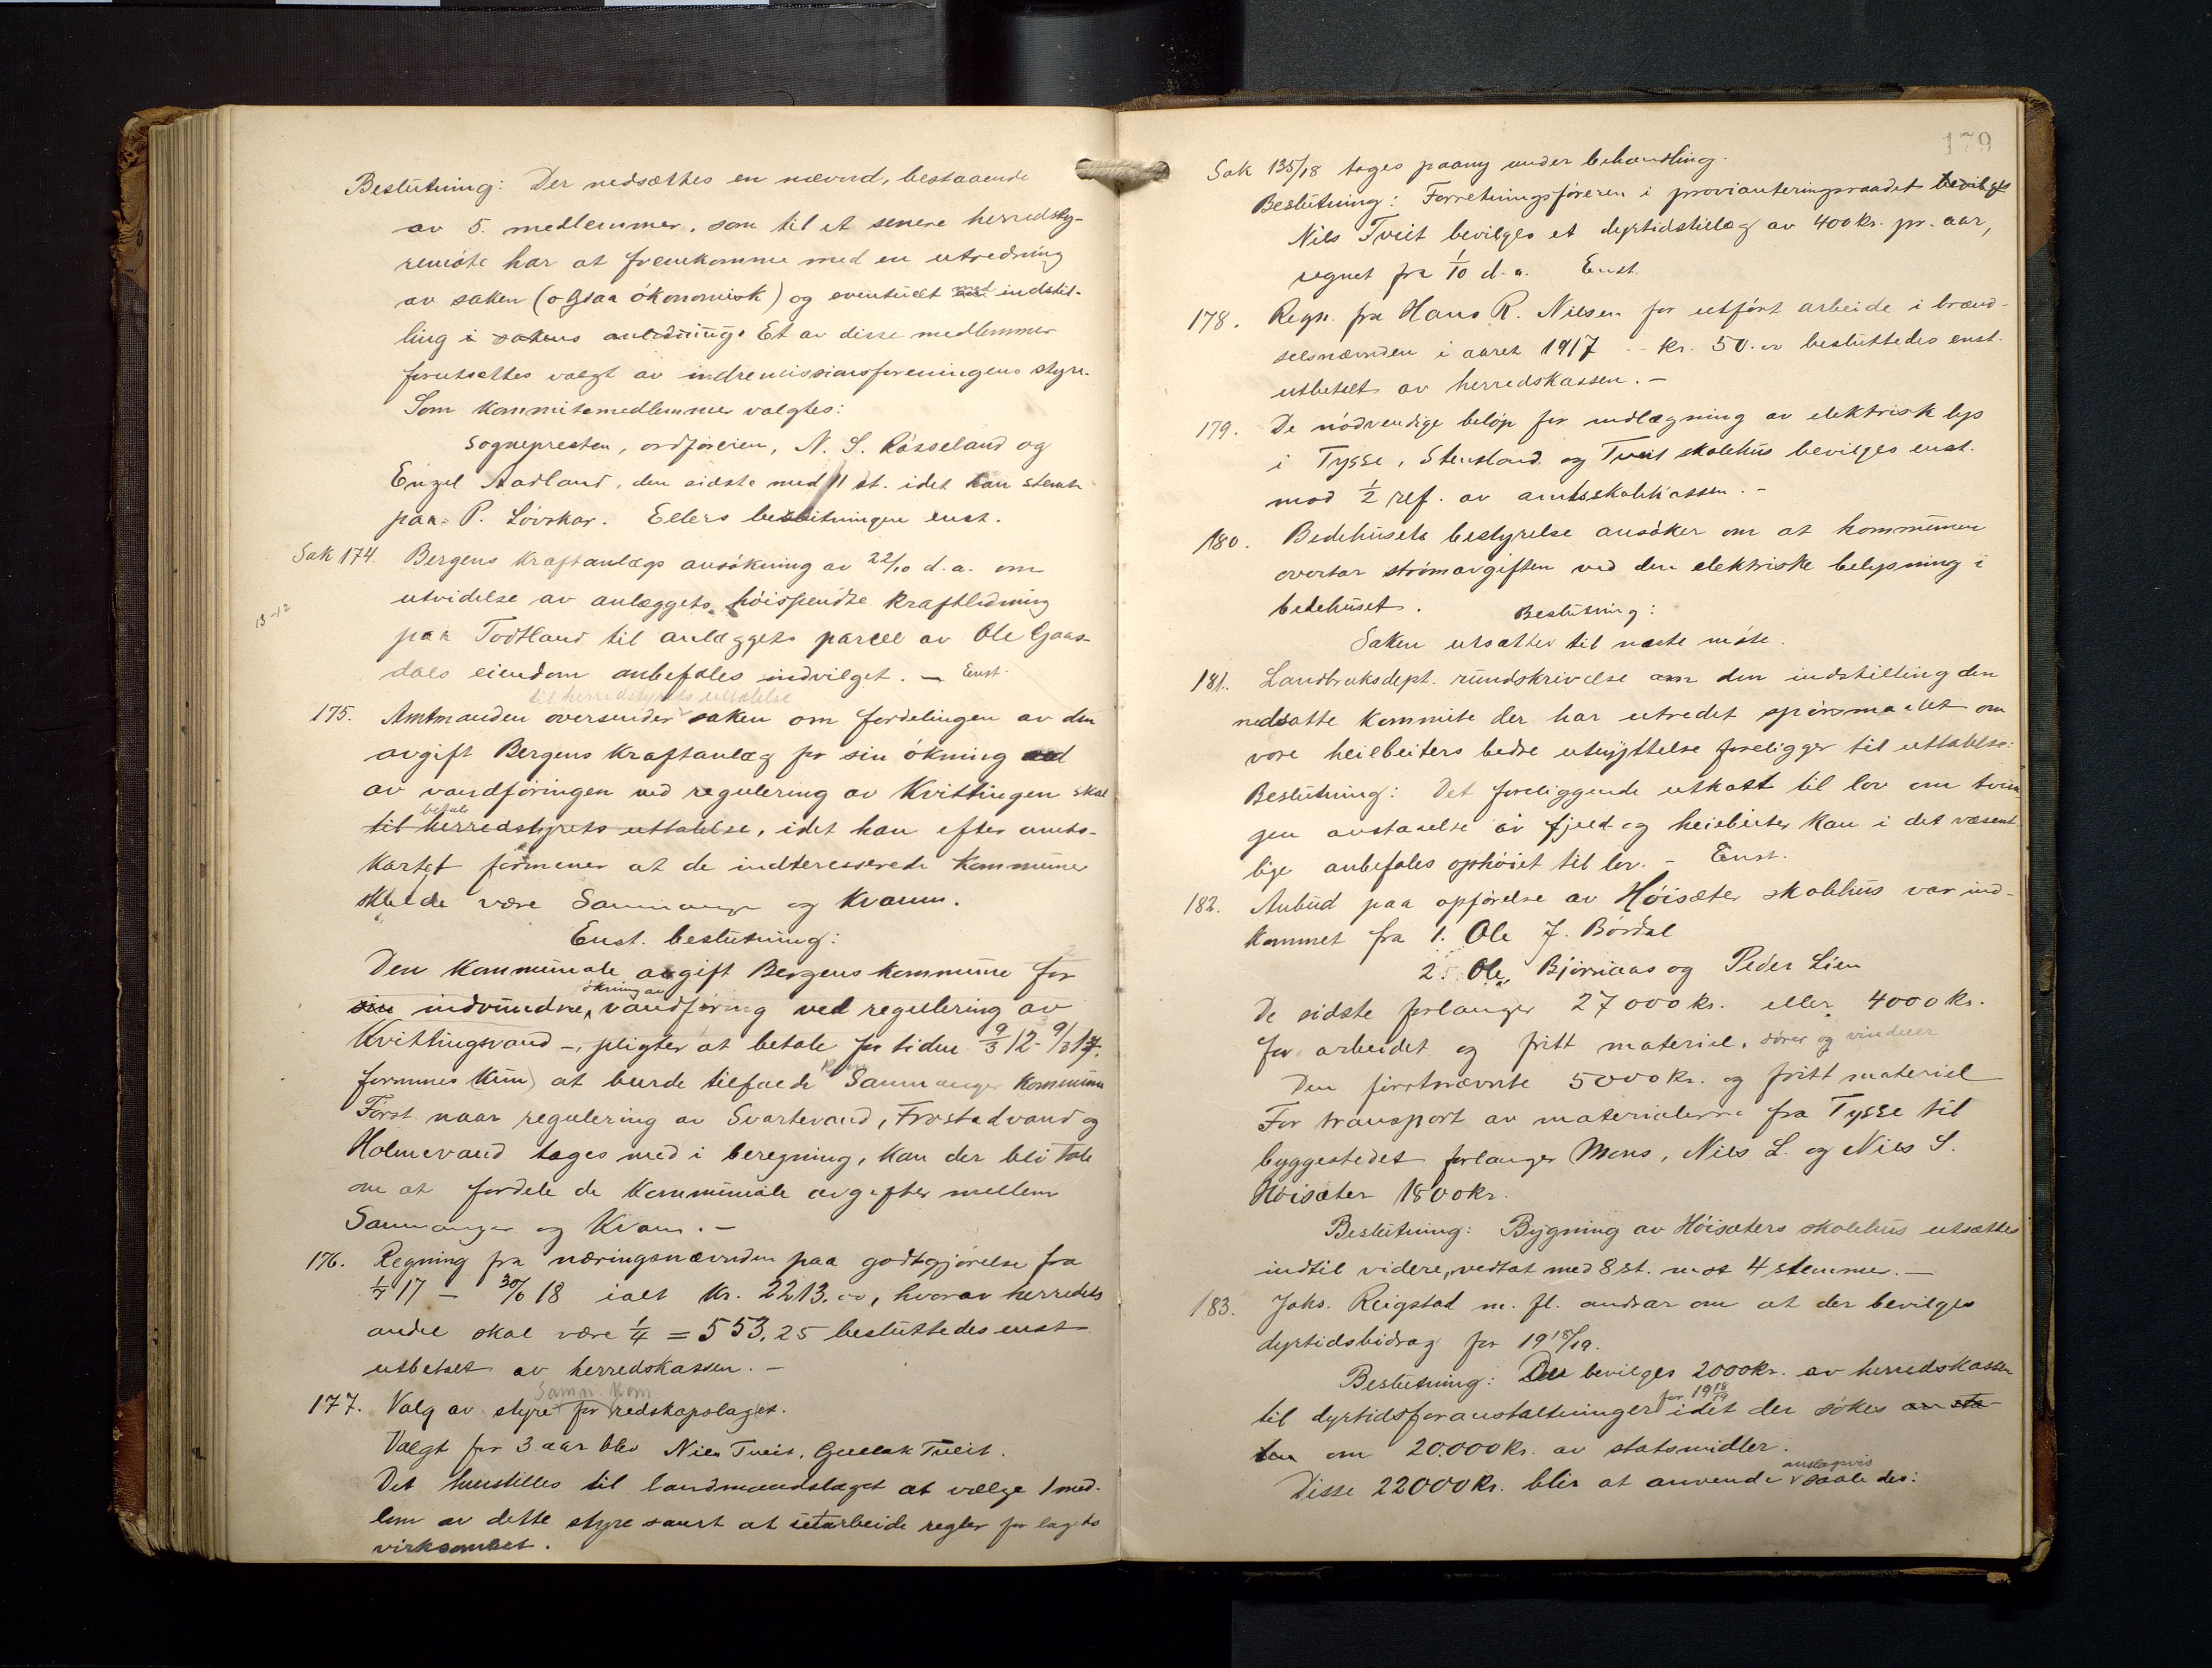 Beslutning: Der nedsættes en nævnd, bestaaende
av 5. medlemmer, som til et senere herredsty-
remøte har at fremkomme med en utredning
av saken (ogsaa økonomisk) og eventuelt med indstil-
ling i sakens anledning. Et av disse medlemmer
forutsættes valgt av indremissionsforeningens styre.
Som kommitemedlemmer valgtes:
Sognepresten, ordføreren, N. S. Røsseland og
Engel Aadland, den sidste med 11 st. idet han stemte
paa P. Løvskar. Ellers beslutningen enst.
Sak 174. Bergens kraftanlægs ansøkning av 22/10 d.a. om
utvidelse av anlæggets høispendte kraftledning
13-12
paa Todtland til anlæggets parcel av Ole Gaas-
dals eiendom anbefales indvilget. — Enst.
til herredstyrets uttalelse
175. Amtmanden oversender saken om fordelingen av den
avgift Bergens Kraftanlæg for sin økning
av vandføringen ved regulering av Kvittingen skal
betale
til herredstyrets uttalelse, idet han efter amts-
kartet formener at de indteresserede kommuner
skulde være Samnanger og Kvamm.
Enst. beslutning:
Den kommunale avgift Bergens kommune for
økning av
sin indvundne vandføring ved regulering av
Kvittingsvand – pligter at betale for tiden 9/3 12 - 9/3 17.
formenes kun at burde tilfalde Samnanger kommune
Først naar regulering av Svartevand, Frostadvand og
Holmevand tages med i beregning, kan der bli tale
om at fordele de kommunale avgifter mellem
Samnanger og Kvam. –
176. Regning fra næringsnævnden paa godtgjørelse fra
1/4 17 – 30/6 18 ialt kr. 2213.00, hvorav herredets
andel skal være 1/4 = 553,25 besluttedes enst
utbetalt av herredskassen. –
Samn. kom.
177. Valg av styre for redskapslaget.
Valgt for 3 aar blev Nils Tveit, Gullak Tveit.
Det henstilles til landmandslaget at vælge 1 med-
lem av dette styre samt at utarbeide regler for lagets
virksomhet.
179
Sak 135/18 tages paany under behandling.
Beslutning: Forretningsføreren i provianteringsraadet bevilges
Nils Tveit bevilges et dyrtidstillæg av 400 kr. pr. aar,
regnet fra 1/10 d.a. Enst.
178. Regn. fra Hans R. Nilsen for utført arbeide i brænd-
selsnævnden i aaret 1917 - kr. 50.00 besluttedes enst.
utbetalt av herredskassen. –
179. De nødvendige beløp for indlægning av elektrisk lys
i Tysse, Stensland og Tveit skolehus bevilges enst.
mod 1/2 ref. av amtsskolekassen. –
180. Bedehusets bestyrelse ansøker om at kommunen
overtar strømavgiften ved den elektriske belysning i
bedehuset. Beslutning:
Saken utsættes til næste møte.
181. Landbruksdept. rundskrivelse om den indstilling den
nedsatte kommite der har utredet spørsmaalet om
vore heilbeiters bedre utnyttelse foreligger til uttalelse:
Beslutning: Det foreliggende utkast til lov om tvun-
gen avstaaelse av fjeld og heibeiter kan i det væsent-
lige anbefales ophøiet til lov. – Enst.
182. Anbud paa opførelse av Høisæter skolehus var ind-
kommet fra 1. Ole J. Børdal
2. Ole Bjørsiaas og Peder Lien
De sidste forlanger 27000 kr. eller 4000 kr.
for arbeidet og fritt materiel, dører og vinduer
Den førstnævnte 5000 kr. og fritt materiel
For transport av materialerne fra Tysse til
byggestedet forlanger Mons, Nils L. og Nils S.
Høisæter 1800 kr.
Beslutning: Bygning av Høisæters skolehus utsættes
indtil videre, vedtat med 8 st. mot 4 stemmer. –
183. Johs. Reigstad m. fl. andrar om at der bevilges
dyrtidsbidrag for 1918/19.
Beslutning: Der bevilges 2000 kr. av herredskassen
for 1918/19
til dyrtidsforanstaltninger idet der søkes om sta-
ten om 20.000 kr. av statsmidler.
anslagsvis
Disse 22000 kr. blir at anvende saaledes: